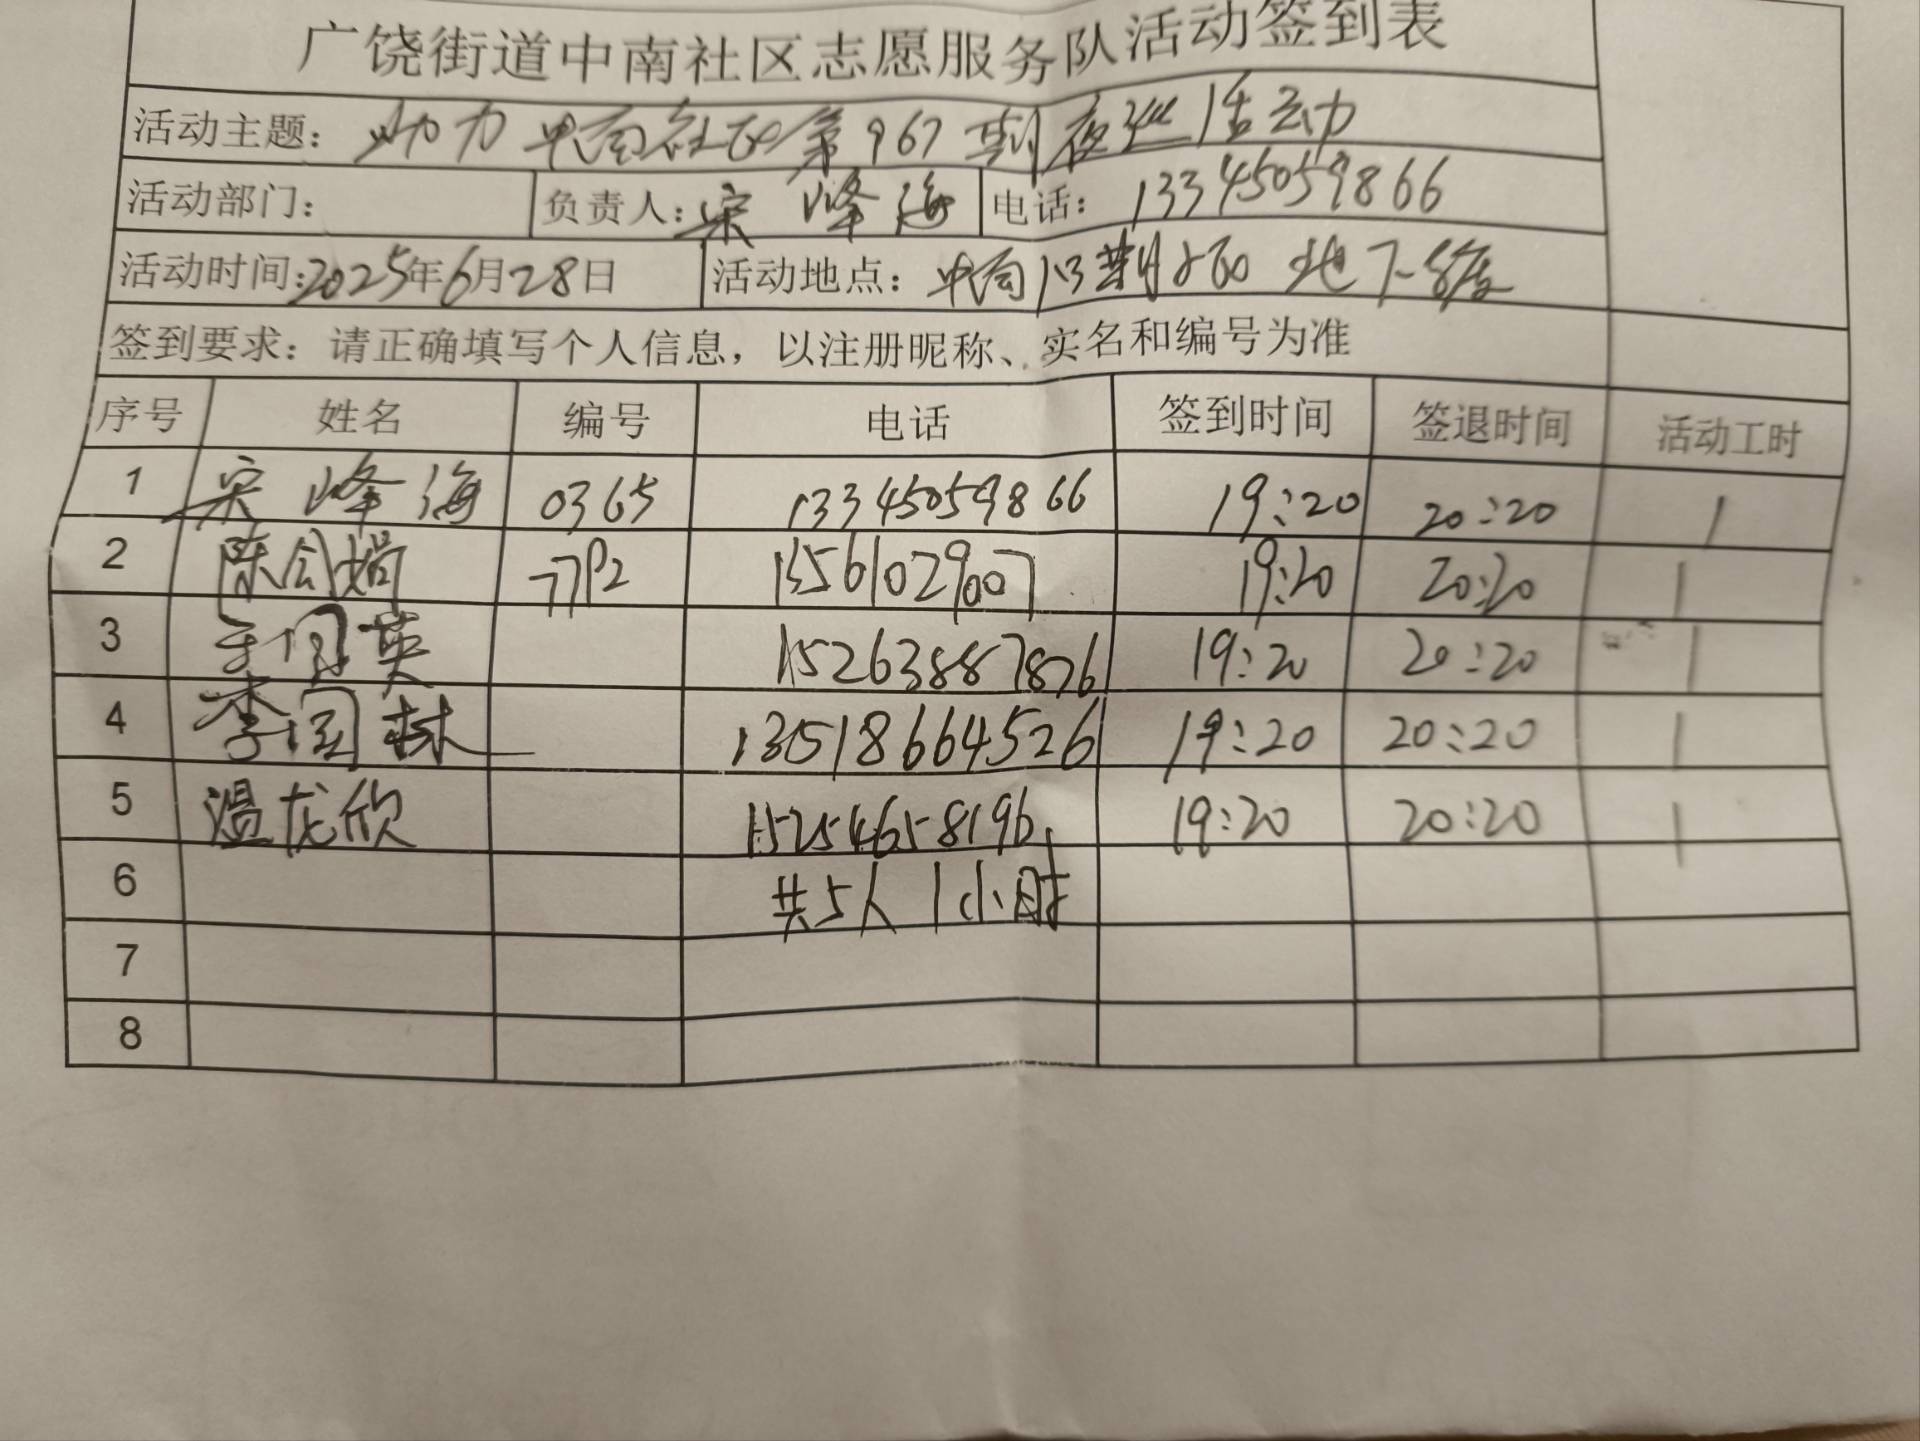 广饶街道中南社区志愿服务队活动签到表
活动主题：助力中南社区第967期夜巡活动
活动部门： 负责人：宋峰海 电话：13345059866
活动时间：2025年6月28日 活动地点：中南 地下
签到要求：请正确填写个人信息，以注册昵称、实名和编号为准
序号 姓名 编号 电话 签到时间 签退时间 活动工时
1 宋峰海 0365 13345059866 19:20 20:20 1
2 陈会娟 15561029007 19:20 20:20 1
3 英 15263887876 19:20 20:20 1
4 李国林 13518664526 19:20 20:20 1
5 温龙欣 15254658196 19:20 20:20 1
6 共5人1小时
7
8